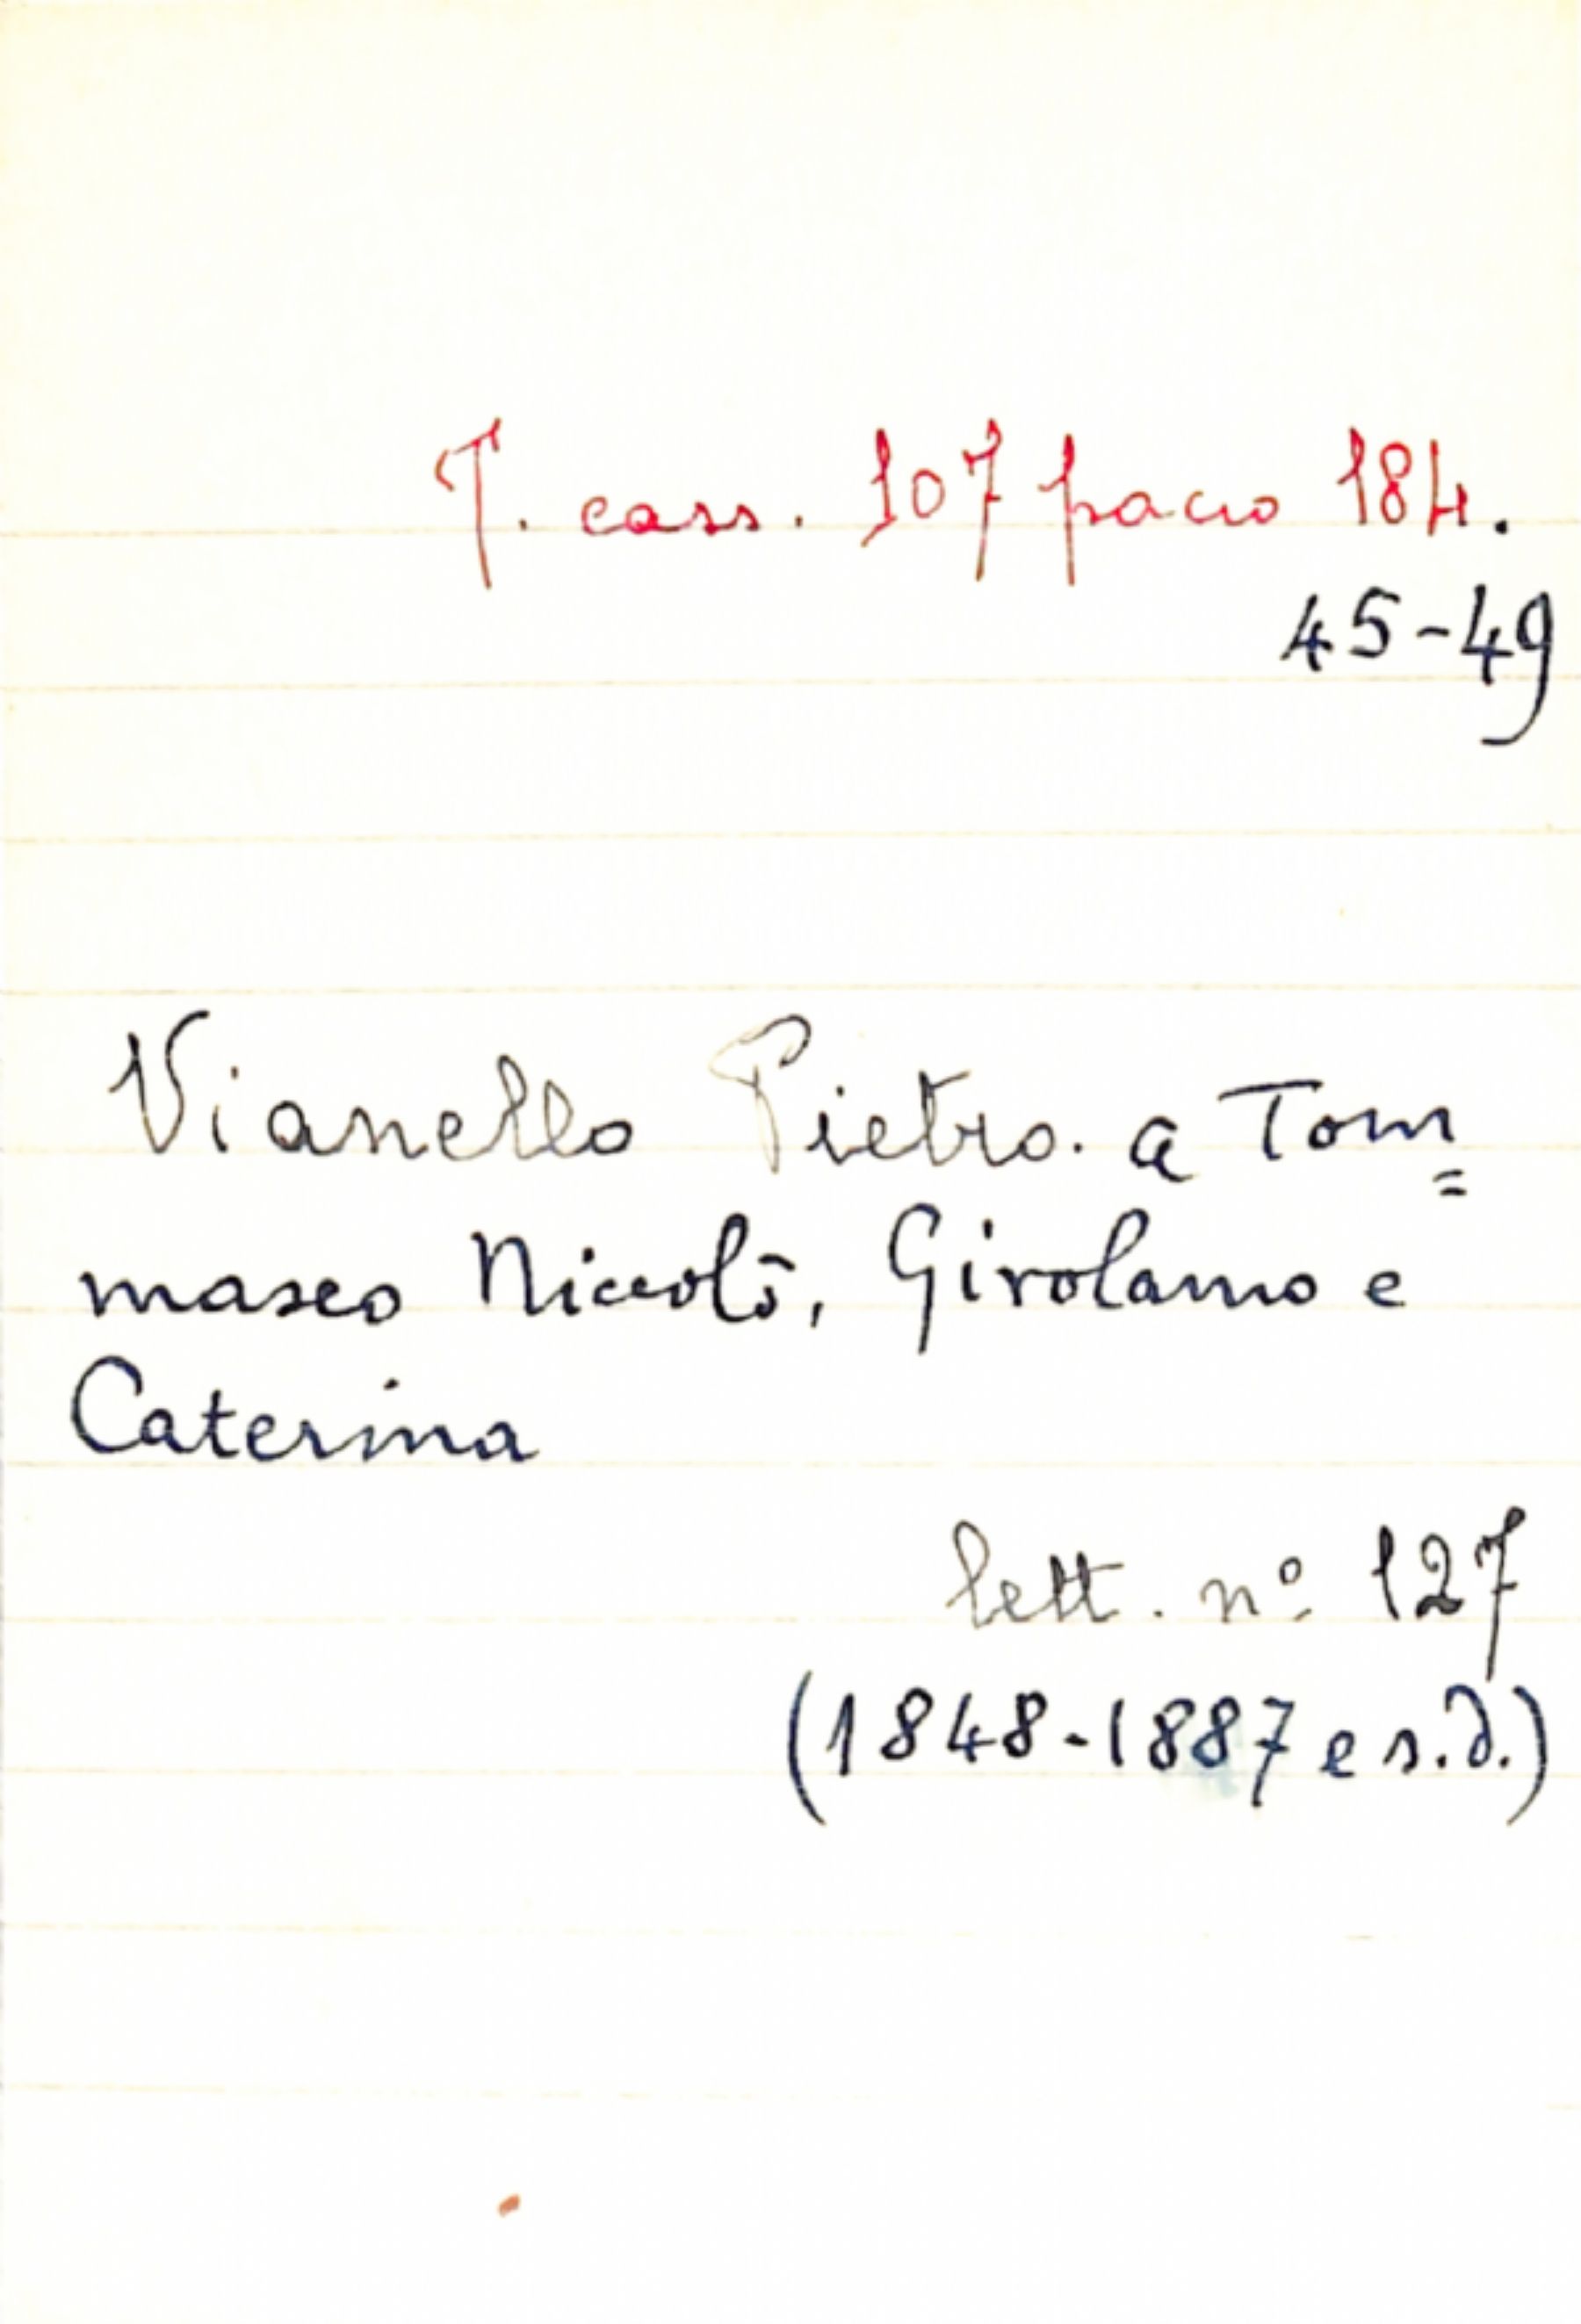 T. cass. 107 pacco 184.
45-49
Vianello Pietro. a Tom=
maseo Niccolò, Girolamo e
Caterina
lett. nº 127
(1848-1887 e s.d.)